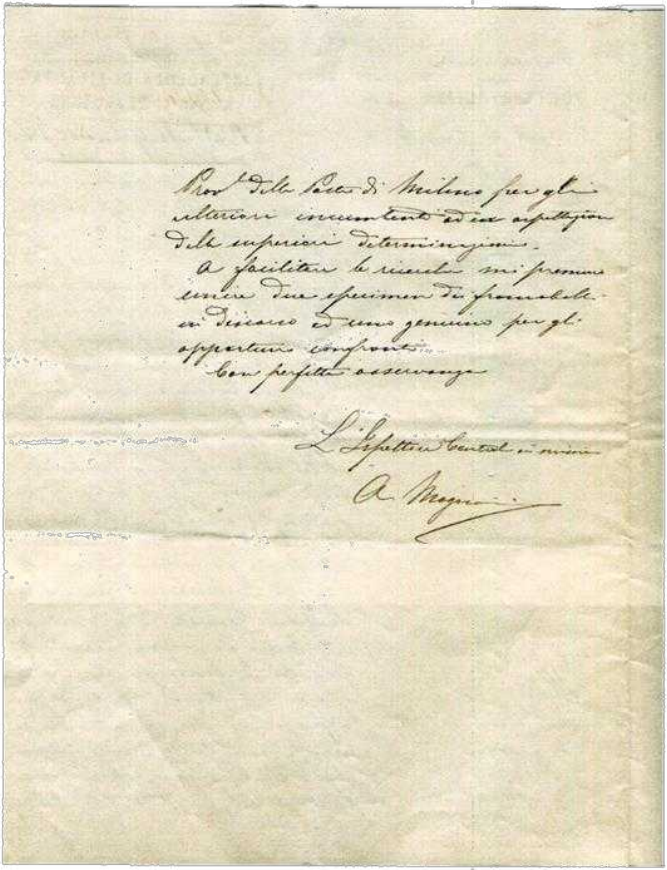 Prov.le delle Poste di Milano per gli
ulteriori incumbenti ed in aspettazione
delle superiori determinazioni.
A facilitare le ricerche mi premuro
unire due specimen dei francobolli
in discorso ed uno genuino per gli
opportuni confronti.
Con perfetta osservanza
L'Ispettore Central in missione
A